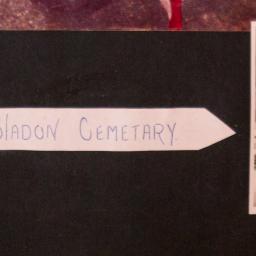 ladon Cemetary